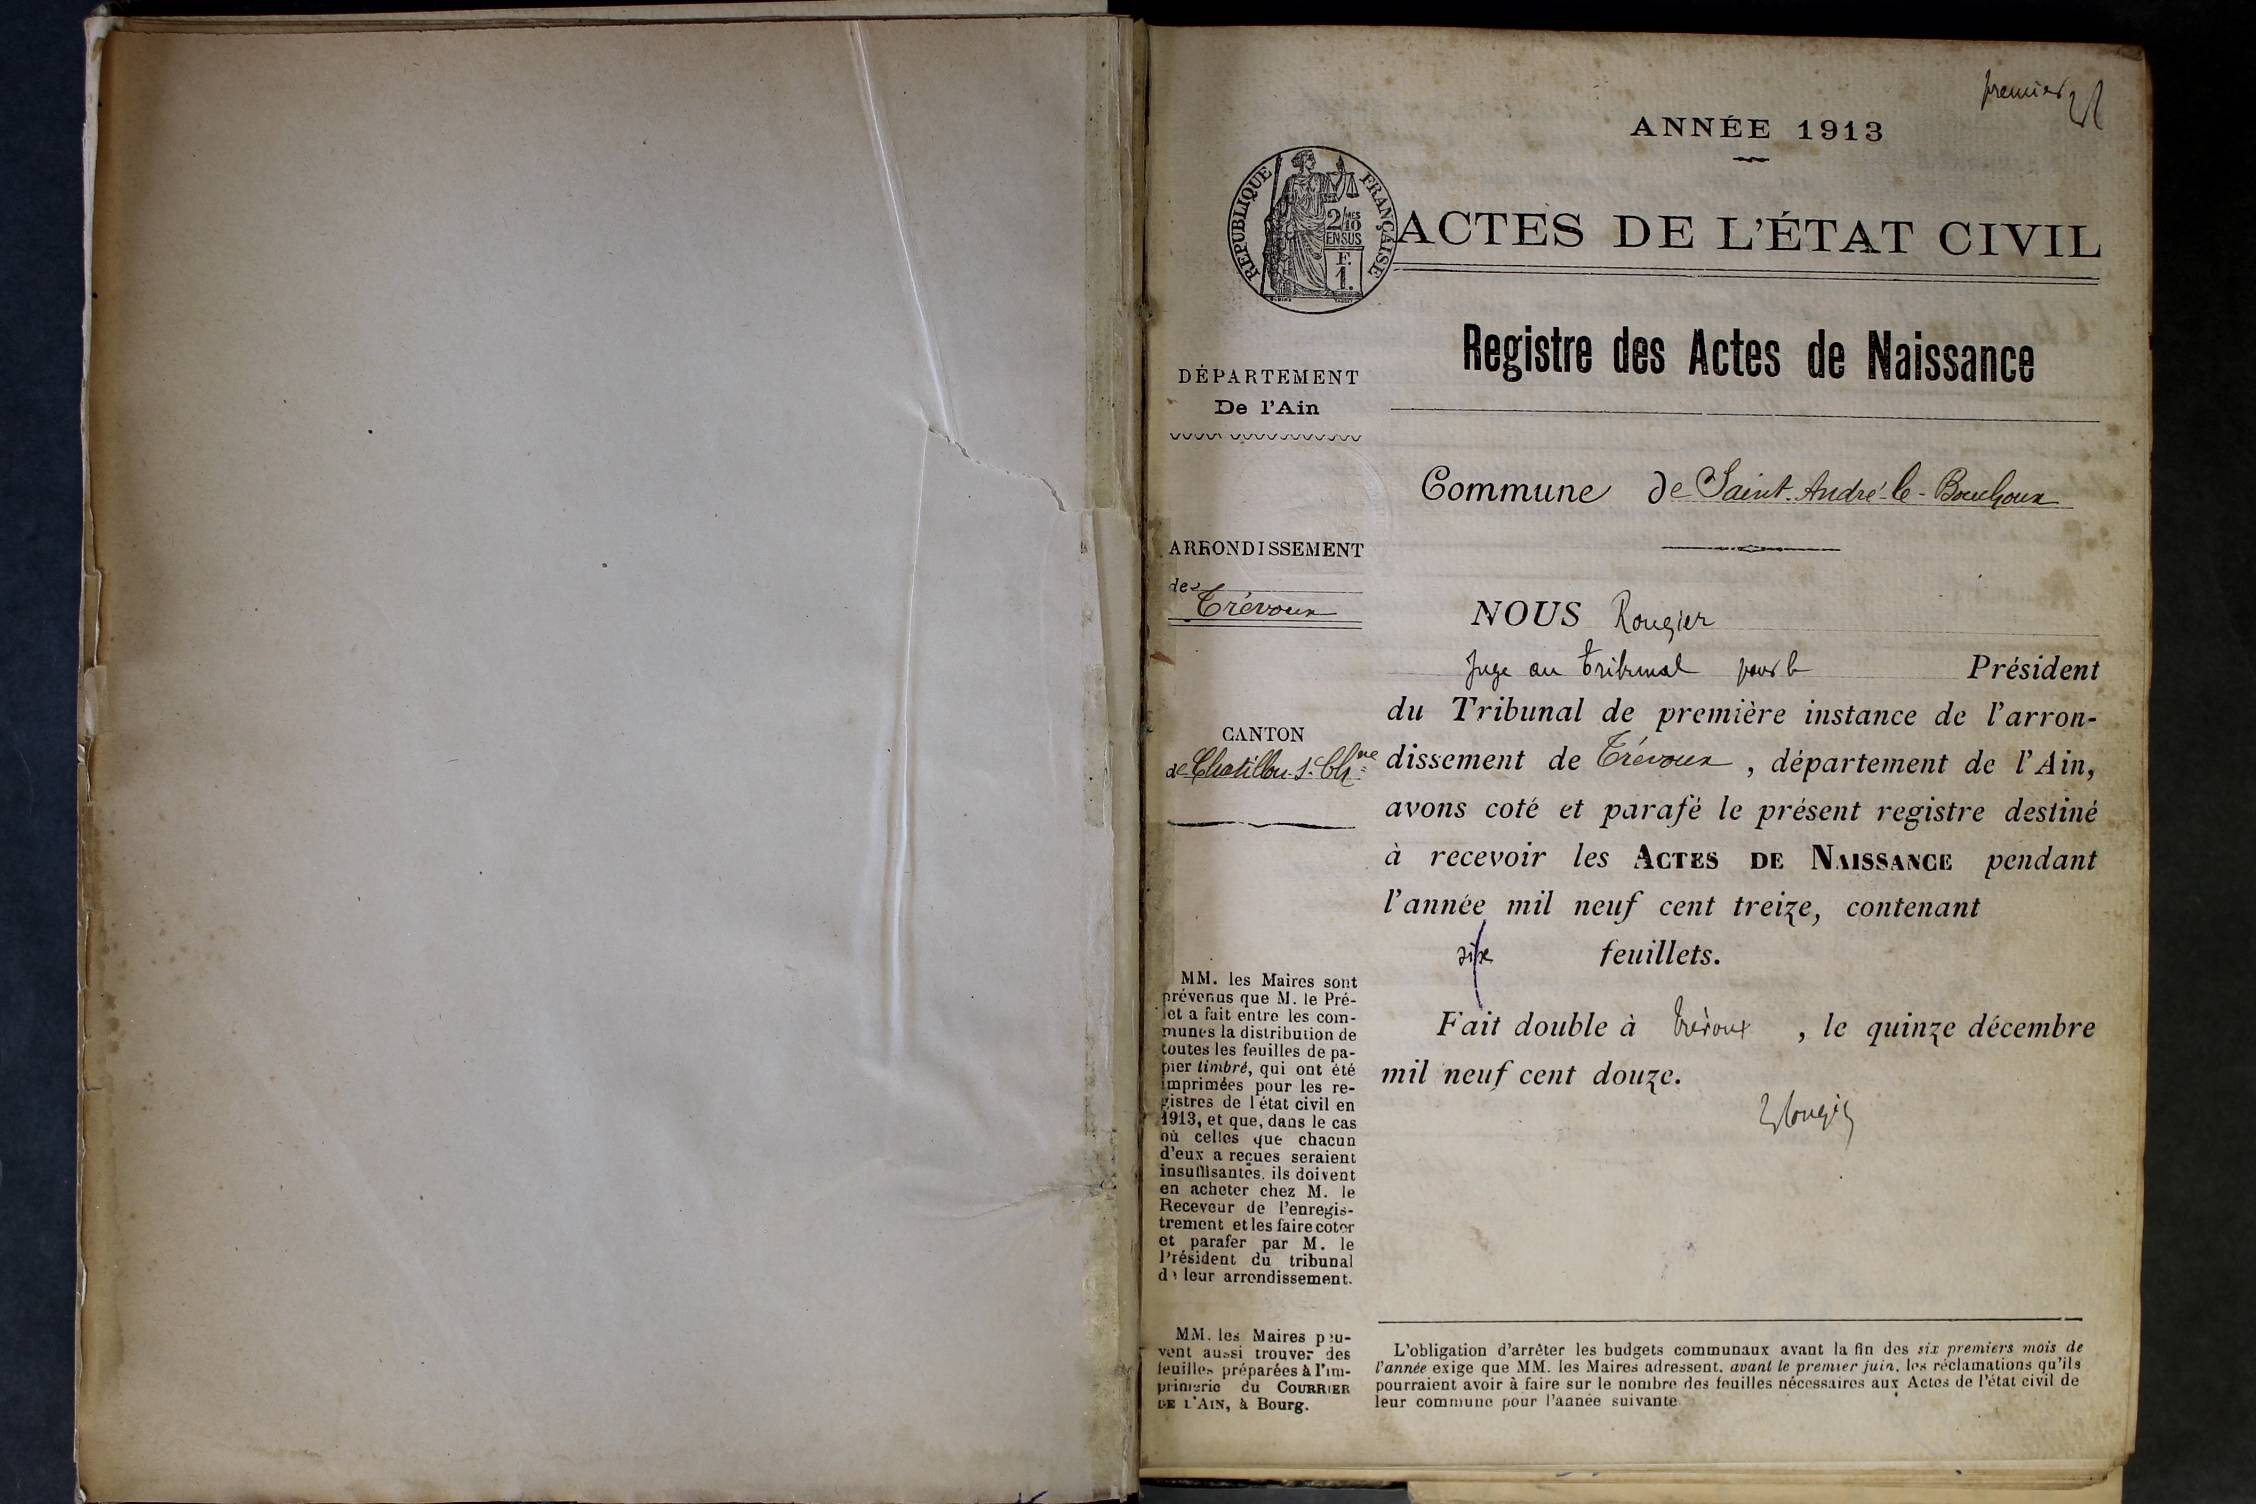 premier
ANNÉE 1913
RÉPUBLIQUE FRANÇAISE
2/10MES
EN SUS
F.
1.
ACTES DE L'ÉTAT CIVIL
Registre des Actes de Naissance
DÉPARTEMENT
De l'Ain
Commune de Saint-André-le-Bouchoux
ARRONDISSEMENT
de
Trévoux
NOUS Rougier
Juge au Tribunal pour le Président
du Tribunal de première instance de l'arron-
CANTON
de Chatillon-s-Chne
dissement de Trévoux, département de l'Ain,
avons coté et parafé le présent registre destiné
à recevoir les ACTES DE NAISSANCE pendant
l'année mil neuf cent treize, contenant
six feuillets.
Fait double à Trévoux, le quinze décembre
mil neuf cent douze.
Rougier
MM. les Maires sont
prévenus que M. le Pré-
fet a fait entre les com-
munes la distribution de
toutes les feuilles de pa-
pier timbré, qui ont été
imprimées pour les re-
gistres de l'état civil en
1913, et que, dans le cas
où celles que chacun
d'eux a reçues seraient
insuffisantes, ils doivent
en acheter chez M. le
Receveur de l'enregis-
trement et les faire coter
et parafer par M. le
Président du tribunal
de leur arrondissement.
MM. les Maires peu-
vent aussi trouver des
feuilles préparées à l'im-
primerie du COURRIER
DE L'AIN, à Bourg.
L'obligation d'arrêter les budgets communaux avant la fin des six premiers mois de
l'année exige que MM. les Maires adressent, avant le premier juin, les réclamations qu'ils
pourraient avoir à faire sur le nombre des feuilles nécessaires aux Actes de l'état civil de
leur commune pour l'année suivante